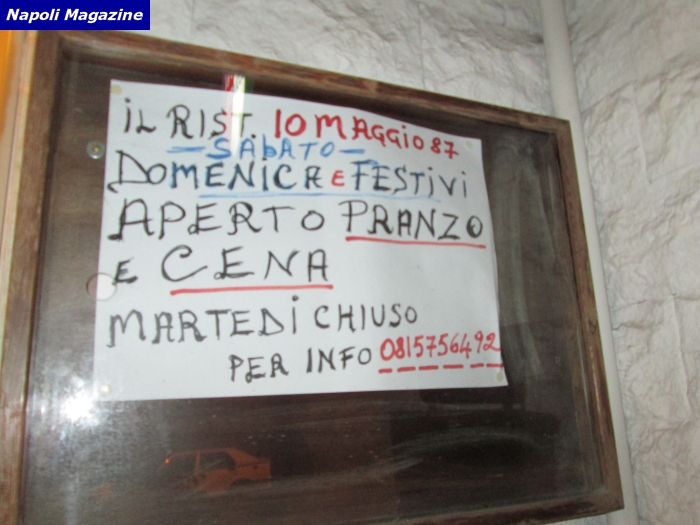 Napoli Magazine
IL RIST. 10 MAGGIO 87
- SAbATO -
DOMENICA E FESTIVI
APERTO PRANZO
E CENA
MARTEDI CHIUSO
PER INFO 0815756492